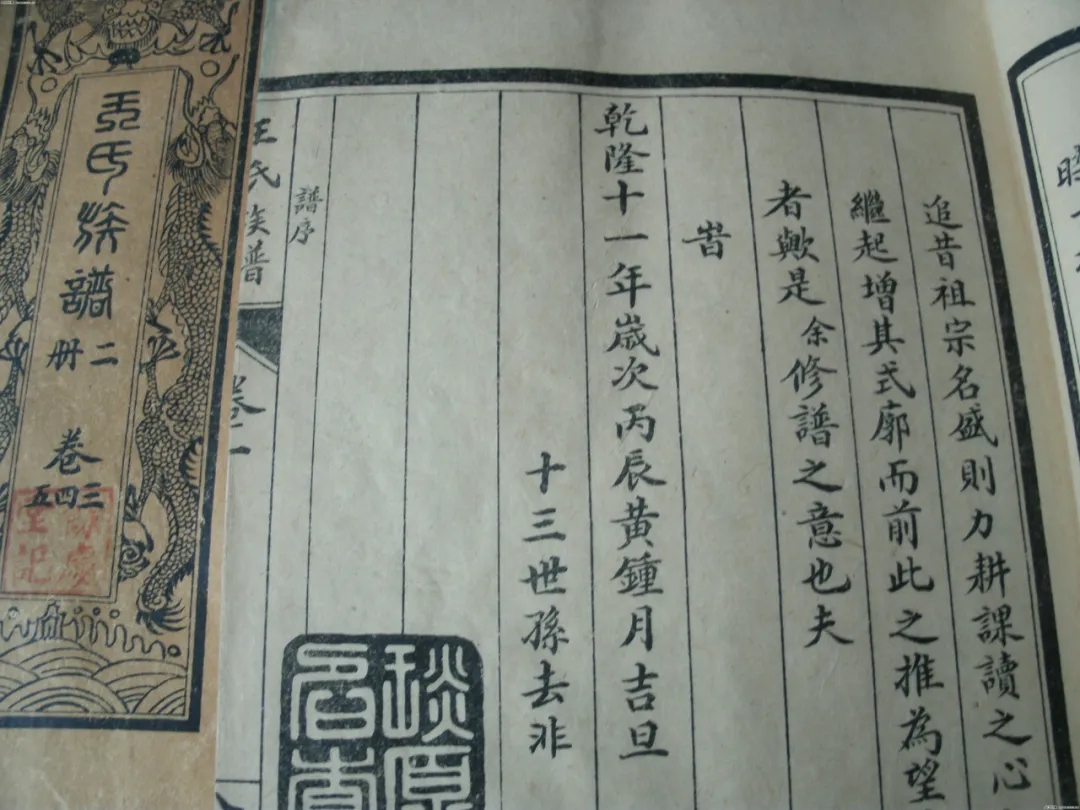 追昔祖宗名盛則力耕課讀之心
繼起增其式廓而前此之推為望
者歟是余修譜之意也夫
旹
乾隆十一年歲次丙辰黃鍾月吉旦
十三世孫去非
譜序
王氏族譜
卷
王氏族譜
二冊
卷
三四五